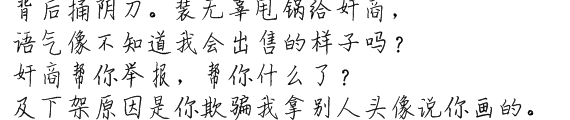 背后捅阴刀。装无辜甩锅给奸商，
语气像不知道我会出售的样子吗？
奸商帮你举报，帮你什么了？
及下架原因是你欺骗我拿别人头像说你画的。